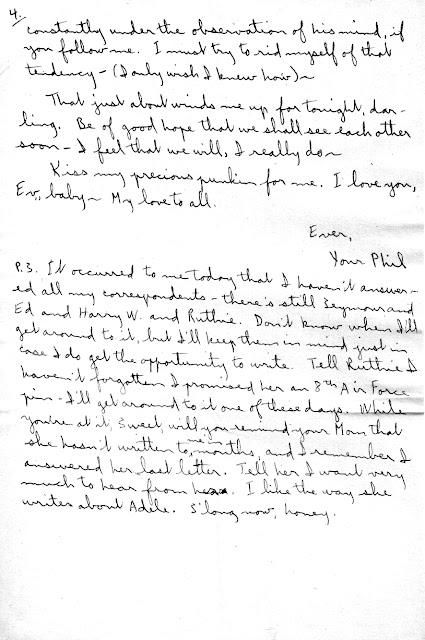 4.
constantly under the observation of his mind, if
you follow me. I must try to rid myself of that
tendency – (I only wish I knew how) ~
That just about winds me up for tonight, dar-
ling. Be of good hope that we shall see each other
soon – I feel that we will, I really do ~
Kiss my precious punkin for me. I love you,
Ev, baby ~ My love to all.
Ever,
Your Phil
P.S. It occurred to me today that I haven't answer-
ed all my correspondents – there's still Seymour and
Ed and Harry W. and Ruthie. Don't know when I'll
get around to it, but I'll keep them in mind just in
case I do get the opportunity to write. Tell Ruthie I
haven't forgotten I promised her an 8th Air Force
pin – I'll get around to it one of these days. While
you're at it, Sweet, will you remind your Mom that
she hasn't written to me in months, and I remember I
answered her last letter. Tell her I want very
much to hear from her. I like the way she
writes about Adele. S'long now, honey.